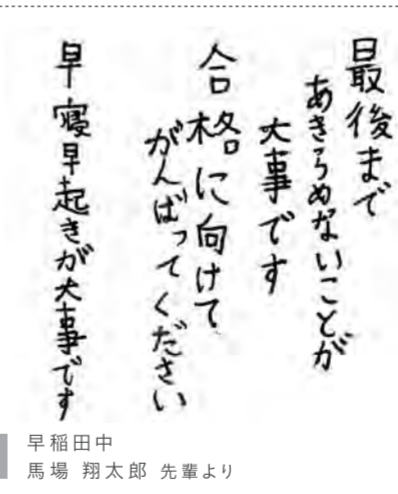 最後まで
あきらめないことが
大事です
合格に向けて
がんばってください
早寝早起きが大事です
早稲田中
馬場 翔太郎 先輩より